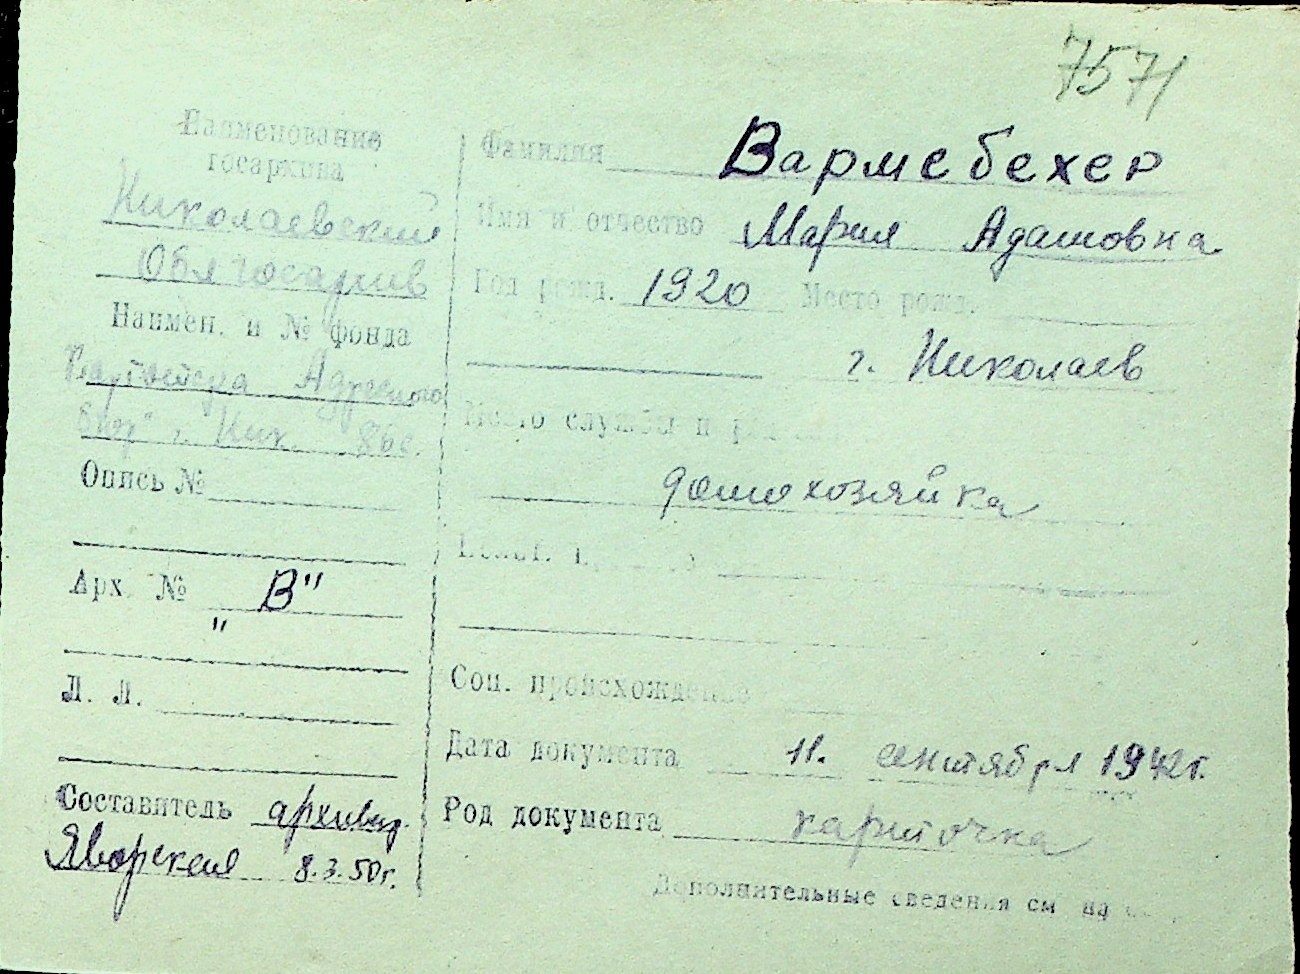 7571
Наименование
госархива
Николаевский
Облгосархив
Наимен. и № фонда
Картотека Адресного
бюро г. Ник.
Опись №
Арх. № "В"
Л. Л.
Составитель архивар.
Яворская 8.3.50г.
Фамилия Вармсбехер
Имя и отчество Мария Адамовна
Год рожд. 1920 Место рожд.
г. Николаев
Место службы и
домохозяйка
Соц. происхождение
Дата документа 11. сентября 1942г.
Род документа карточка
Дополнительные сведения см на